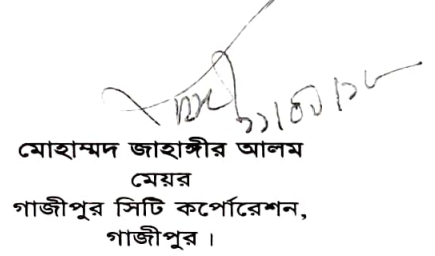 মোহাম্মদ জাহাঙ্গীর আলম
মেয়র
গাজীপুর সিটি কর্পোরেশন,
গাজীপুর।